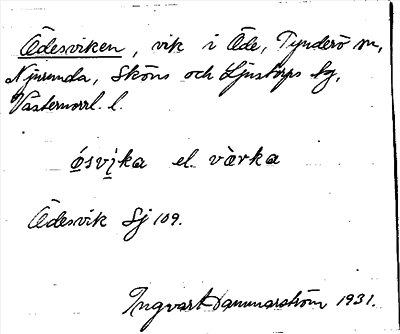 Ådesviken, vik i Åde, Tynderö sn,
Njurunda, Sköns och Ljustorps tg,
Västernorrl. l.
ósvika el. värka
Ådesvik Sj 109.
Ingvart Hammarström 1931.